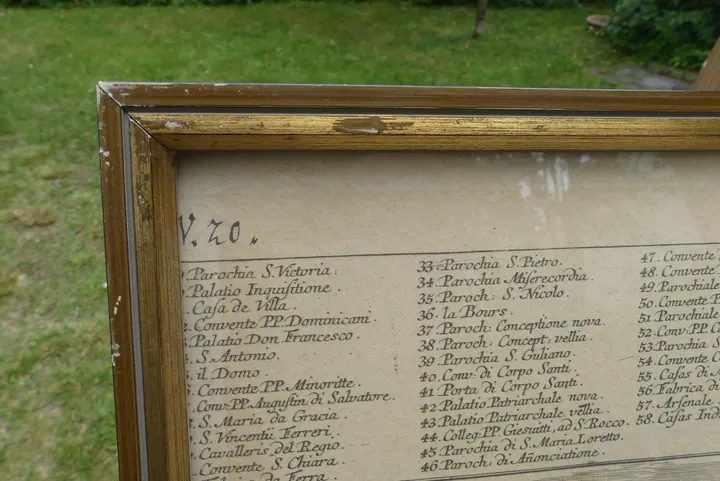 V. 20.
Parochia S. Victoria.
Palatio Inquisitione.
Casa de Villa.
Convente P.P. Dominicani.
Palatio Don Francesco.
S. Antonio.
il Domo.
Convente P.P. Minoritte.
Conv: P.P. Augustin di Salvatore.
S. Maria da Gracia.
S. Vincentii Ferreri.
Cavalleris del Regio.
Convente S. Chiara.
da Ferra.
33. Parochia S. Pietro.
34. Parochia Misericordia.
35. Paroch: S. Nicolo.
36. la Bours.
37 Paroch: Conceptione nova.
38 Paroch: Concept: vellia.
39 Parochia S. Guliano.
40 Conv: di Corpo Santi.
41 Porta di Corpo Santi.
42 Palatio Patriarchale nova.
43 Palatio Patriarchale vellia.
44 Colleg: P.P. Giesuitti, ad S. Rocco.
45 Parochia di S. Maria Loretto.
46 Paroch: di Añonciatione.
47. Convente
48. Convente
49. Parochiale
50. Convente
51. Parochiale
52. Conv: P.P.
53. Parochia
54. Convente
55. Casas di
56. Fabrica di
57. Arsenale
58. Casas